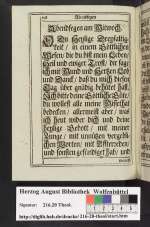 Abendsegen
Abendsegen am Mitwoch.
O Du Heylige Dreyfaltig-
keit / in einem Göttlichen
Wesen / du bist mein Leben /
Heil und einiger Trost / dir sage
ich mit Mund und Hertzen Lob
und Danck / daß du mich diesen
Tag über gnädig behütet hast.
Ich bitte deine Göttliche Güte /
du wollest alle meine Missethat
bedecken / allermeist aber / was
ich heut wider dich und dein
heylige Gebott / mit meiner
Zunge / mit unnützen vergeb-
lichen Worten / mit Affterreden
und sonsten gesündiget hab.
Herzog August Bibliothek Wolfenbüttel
Signatur: 216.28 Theol.
http://diglib.hab.de/drucke/216-28-theol/start.htm